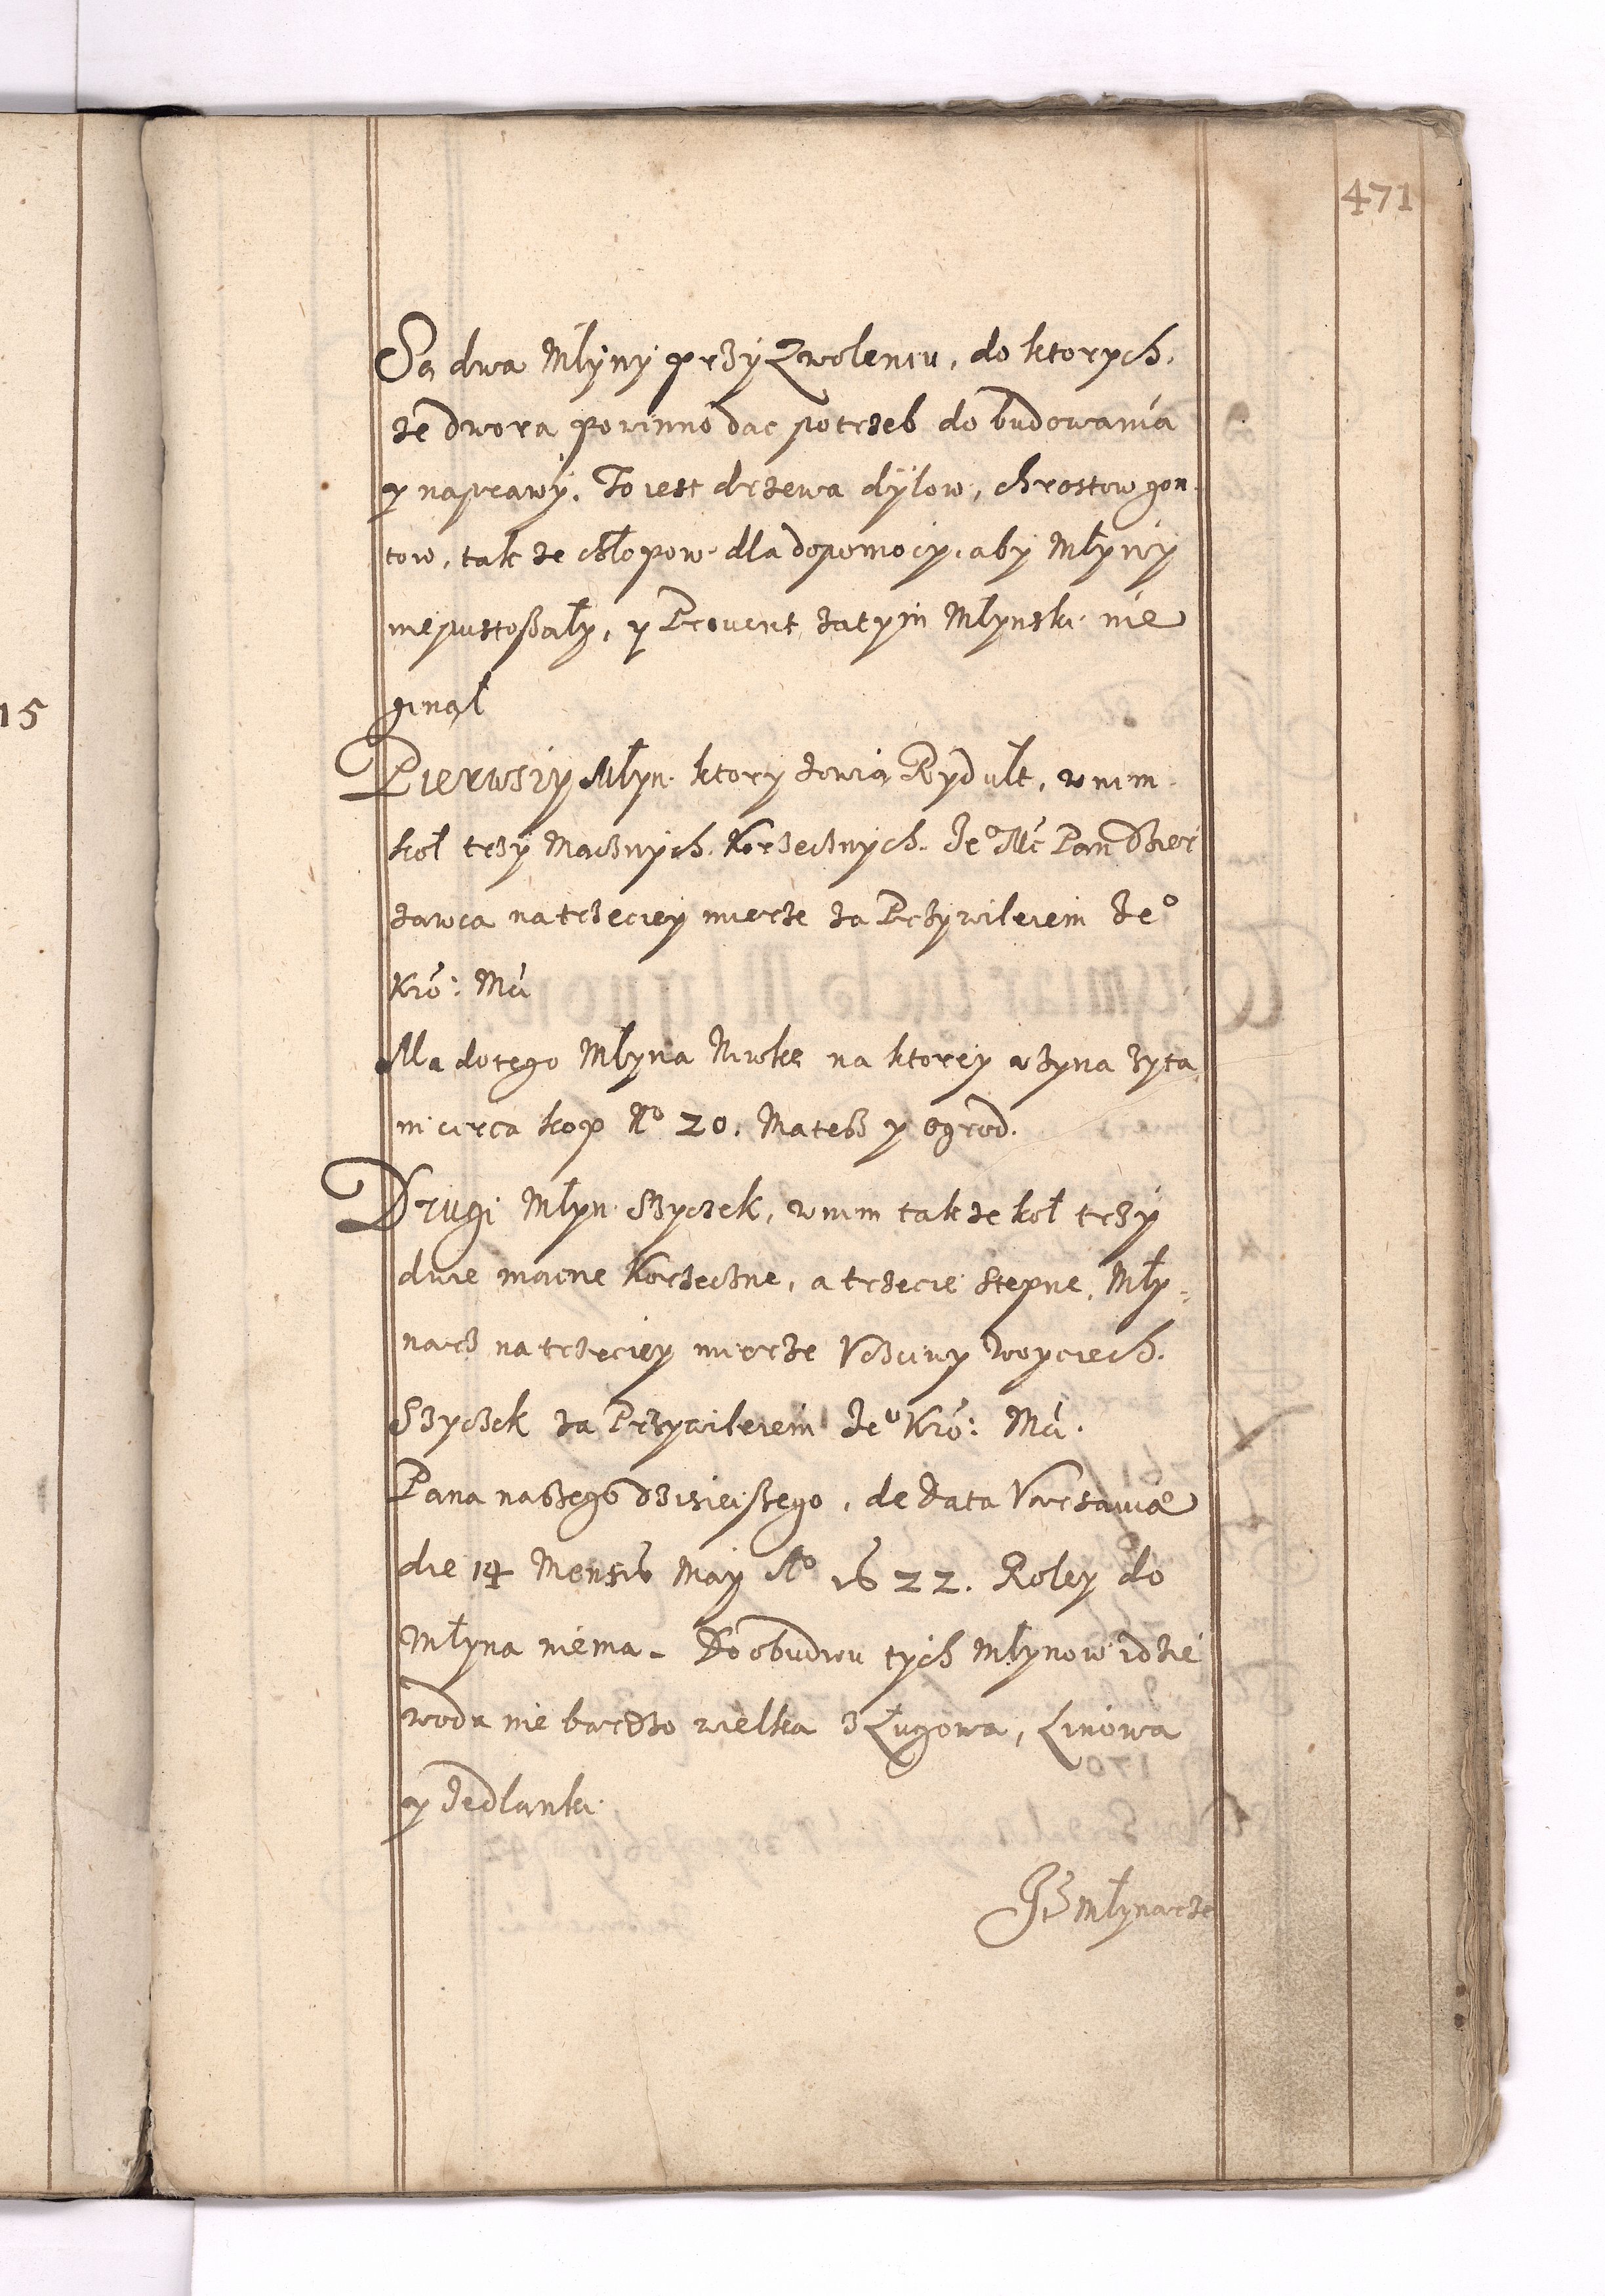 471
15
Są dwa Młyny przy Zwoleniu, do ktorych.
ze dwora powinno dac potrzeb do budowania
y naprawy. To iest drzewa dylow, chrostow gon
tow, tak ze chłopow dla dopomocy, aby Młyny
niepustoszały, y Provent zatym Młynski nie
ginął
Pierwszy Młyn ktory zowią Rydult, w nim
koł trzy Mącznych Korzecznych. Je° Mć Pan Dzier
zawca na trzeciey mierze za Przywileiem Je°
Kró: Mci
Ma do tego Młyna Niwke na ktorey użyna żyta
in circa kop N° 20. Ma tesz y ogrod.
Drugi Młyn Szyczek, w nim tak ze koł trzy
dwie mącne Korzeczne, a trzecie stępne, Mły-
narz na trzeciey mierze Vczciwy Woyciech
Szyczek za Przywileiem Je° Kró: Mci.
Pana naszego dzisieiszego, de Data Varsawiæ
die 14 Mensis May A° 1622. Roley do
Młyna niema. Do obudwu tych Młynow idzie
woda nie bardzo wielka z Ługowa, Linowa
y Jedlanki.
Iż Młynarze